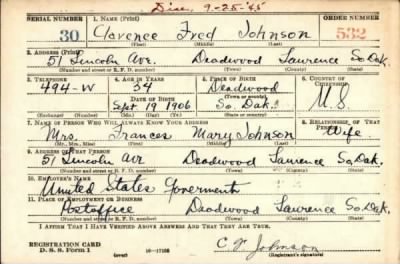 Disc. 9-25-45
SERIAL NUMBER 1. NAME (Print) ORDER NUMBER
30 Clarence Fred Johnson 532
(First) (Middle) (Last)
2. ADDRESS (Print)
51 Lincoln Ave Deadwood Lawrence So.Dak.
(Number and street or R. F. D. number) (Town) (County) (State)
3. TELEPHONE 4. AGE IN YEARS 5. PLACE OF BIRTH 6. COUNTRY OF CITIZENSHIP
494-W 34 Deadwood
DATE OF BIRTH (Town or county)
Sept 19 1906 So. Dak. U.S
(Exchange) (Number) (Mo.) (Day) (Yr.) (State or country)
7. NAME OF PERSON WHO WILL ALWAYS KNOW YOUR ADDRESS 8. RELATIONSHIP OF THAT PERSON
Mrs. Frances Mary Johnson Wife
(Mr., Mrs., Miss) (First) (Middle) (Last)
9. ADDRESS OF THAT PERSON
51 Lincoln Ave Deadwood Lawrence So.Dak.
(Number and street or R. F. D. number) (Town) (County) (State)
10. EMPLOYER'S NAME
United States Goverment
11. PLACE OF EMPLOYMENT OR BUSINESS
Postoffice Deadwood Lawrence So.Dak.
(Number and street or R. F. D. number) (Town) (County) (State)
I AFFIRM THAT I HAVE VERIFIED ABOVE ANSWERS AND THAT THEY ARE TRUE.
REGISTRATION CARD
D. S. S. Form 1 (over) 16-17105 C F Johnson
(Registrant's signature)